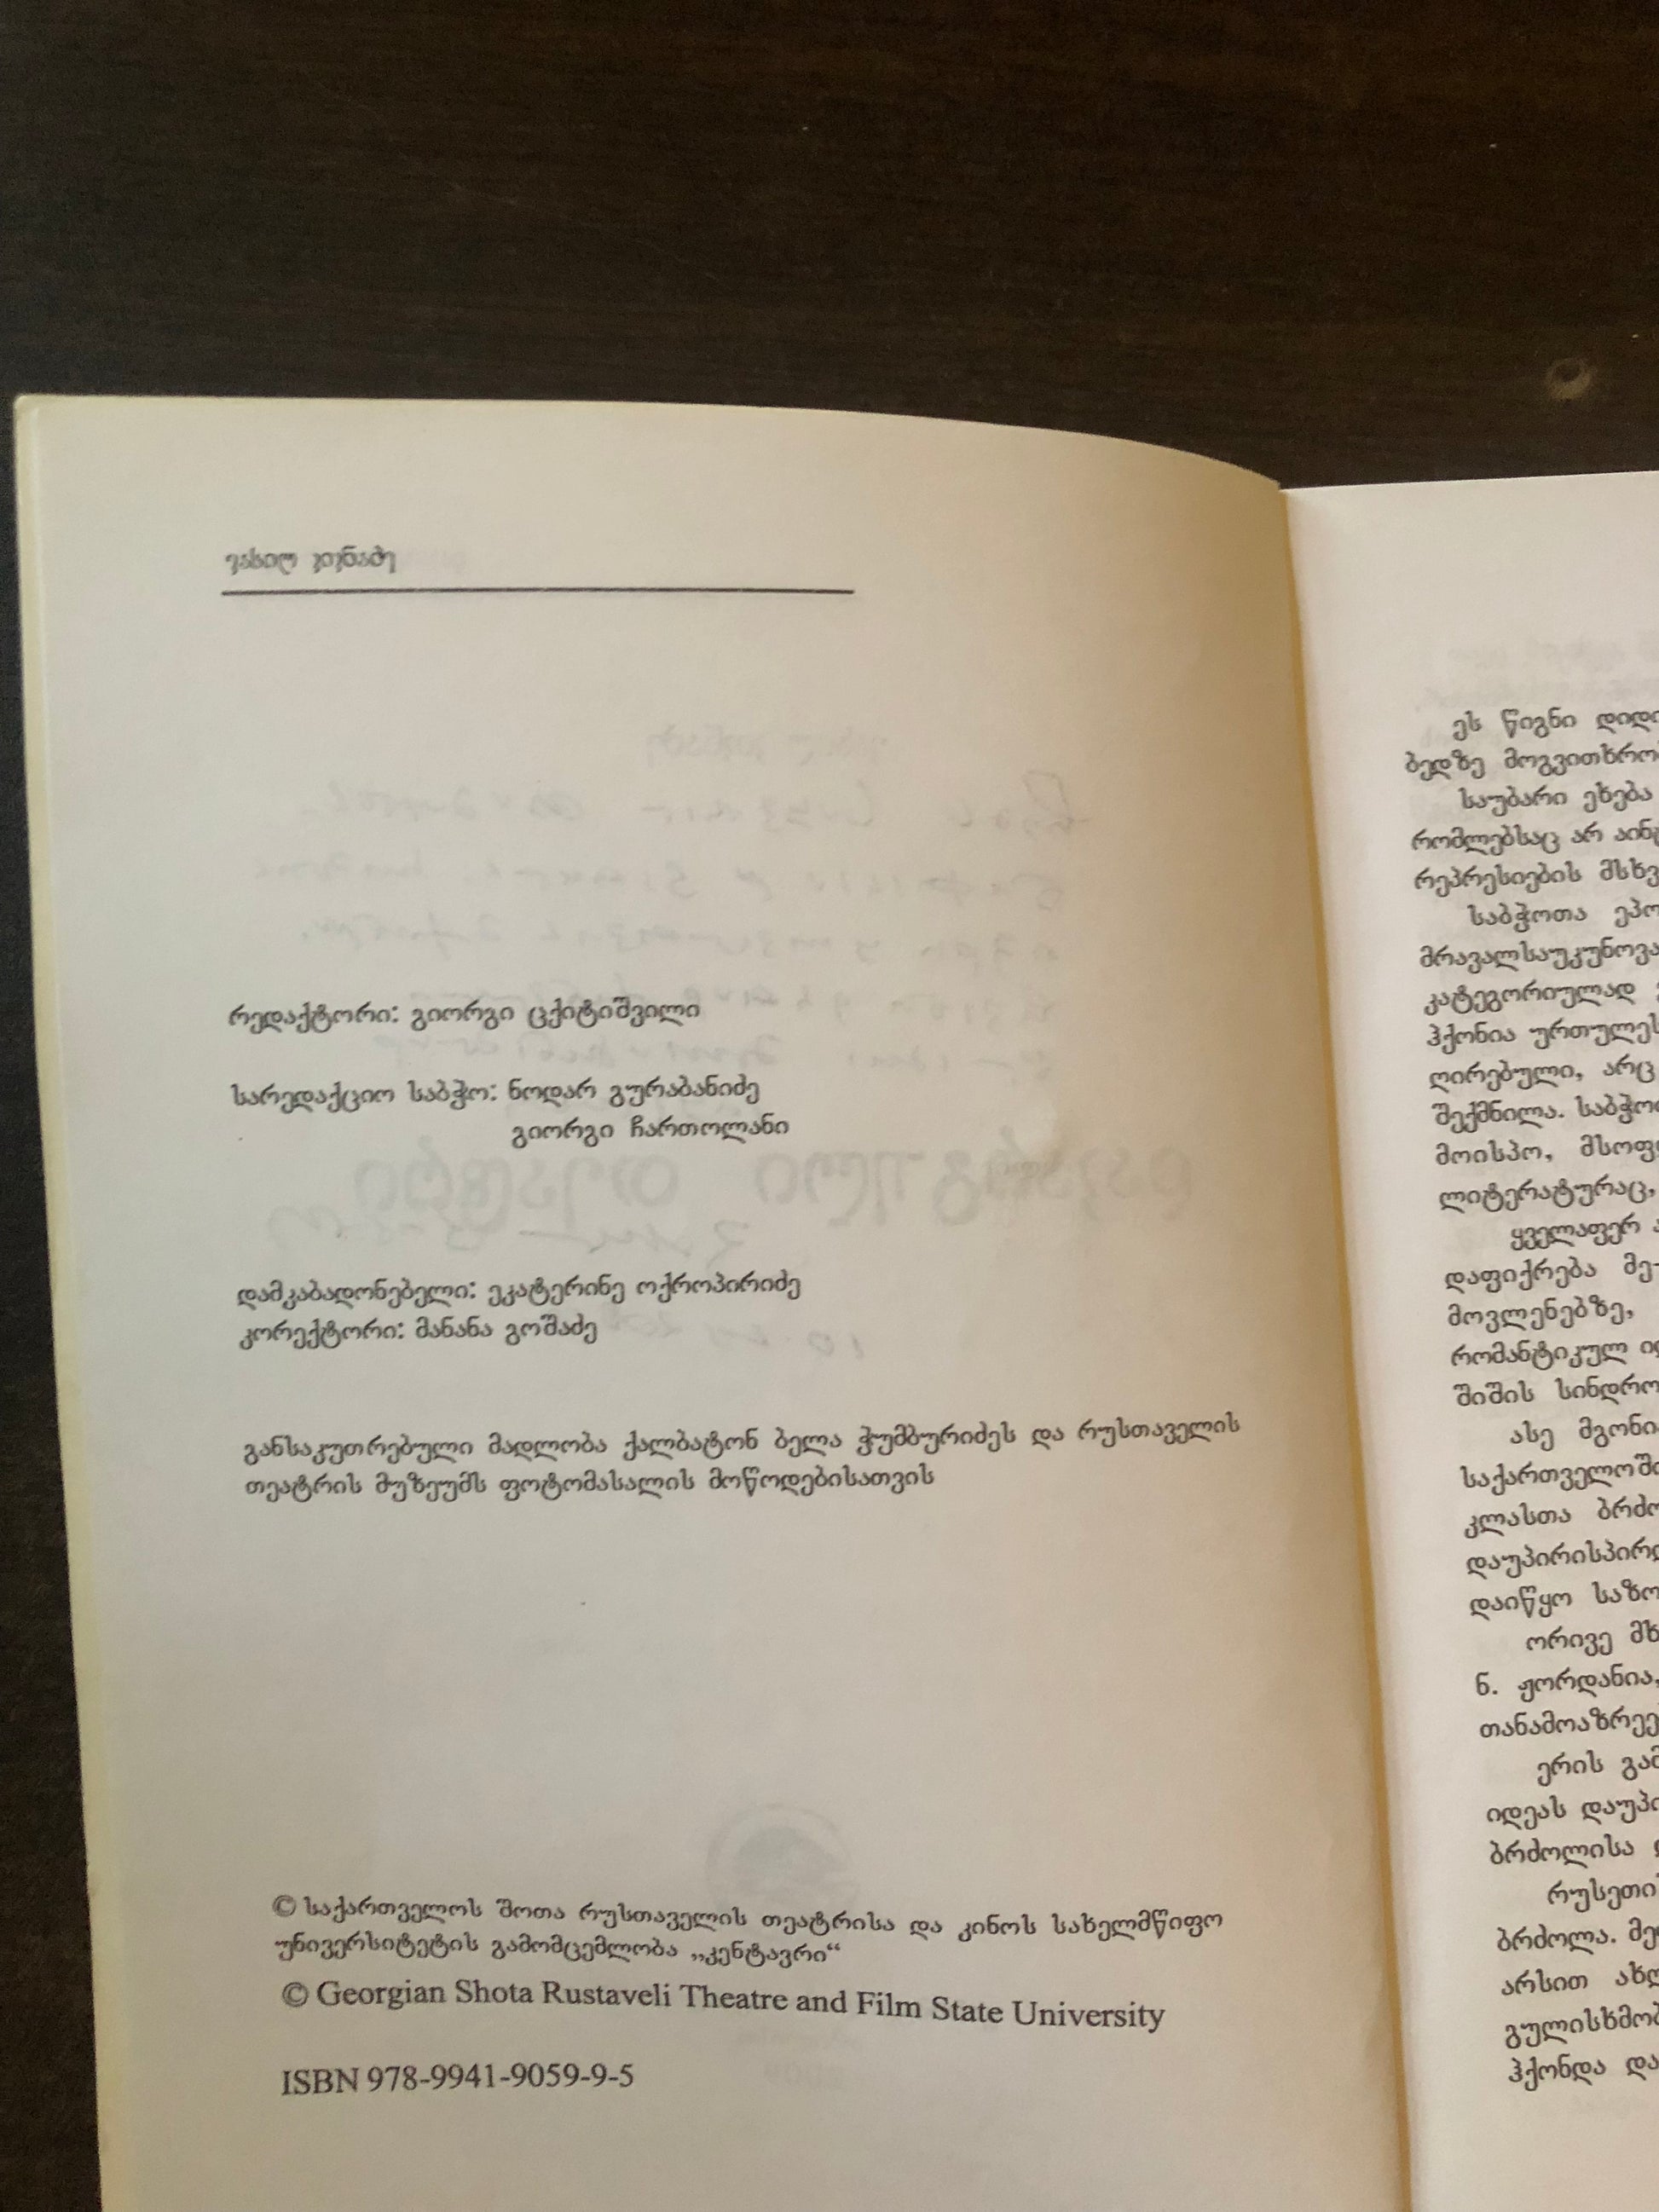 ვასილ კიკნაძე
რედაქტორი: გიორგი ცქიტიშვილი
სარედაქციო საბჭო: ნოდარ გურაბანიძე
გიორგი ჩართოლანი
დამკაბადონებელი: ეკატერინე ოქროპირიძე
კორექტორი: მანანა გოშაძე
განსაკუთრებული მადლობა ქალბატონ ბელა ჭუმბურიძეს და რუსთაველის
თეატრის მუზეუმს ფოტომასალის მოწოდებისათვის
© საქართველოს შოთა რუსთაველის თეატრისა და კინოს სახელმწიფო
უნივერსიტეტის გამომცემლობა „კენტავრი“
© Georgian Shota Rustaveli Theatre and Film State University
ISBN 978-9941-9059-9-5
ეს წიგნი
ბედზე
საუბარი ეხება
რომლებსაც არ
რეპრესიების
საბჭოთა
კატეგორიულად
ჰქონია
ღირებული, არც
შექმნილა.
მოისპო,
ლიტერატურაც,
ყველაფერ
დაფიქრება
მოვლენებზე,
რომანტიკულ
შიშის
ასე
კლასთა
დაიწყო
ორივე
ნ. ჟორდანია,
ერის
იდეას
ბრძოლისა
ბრძოლა.
არსით
ჰქონდა